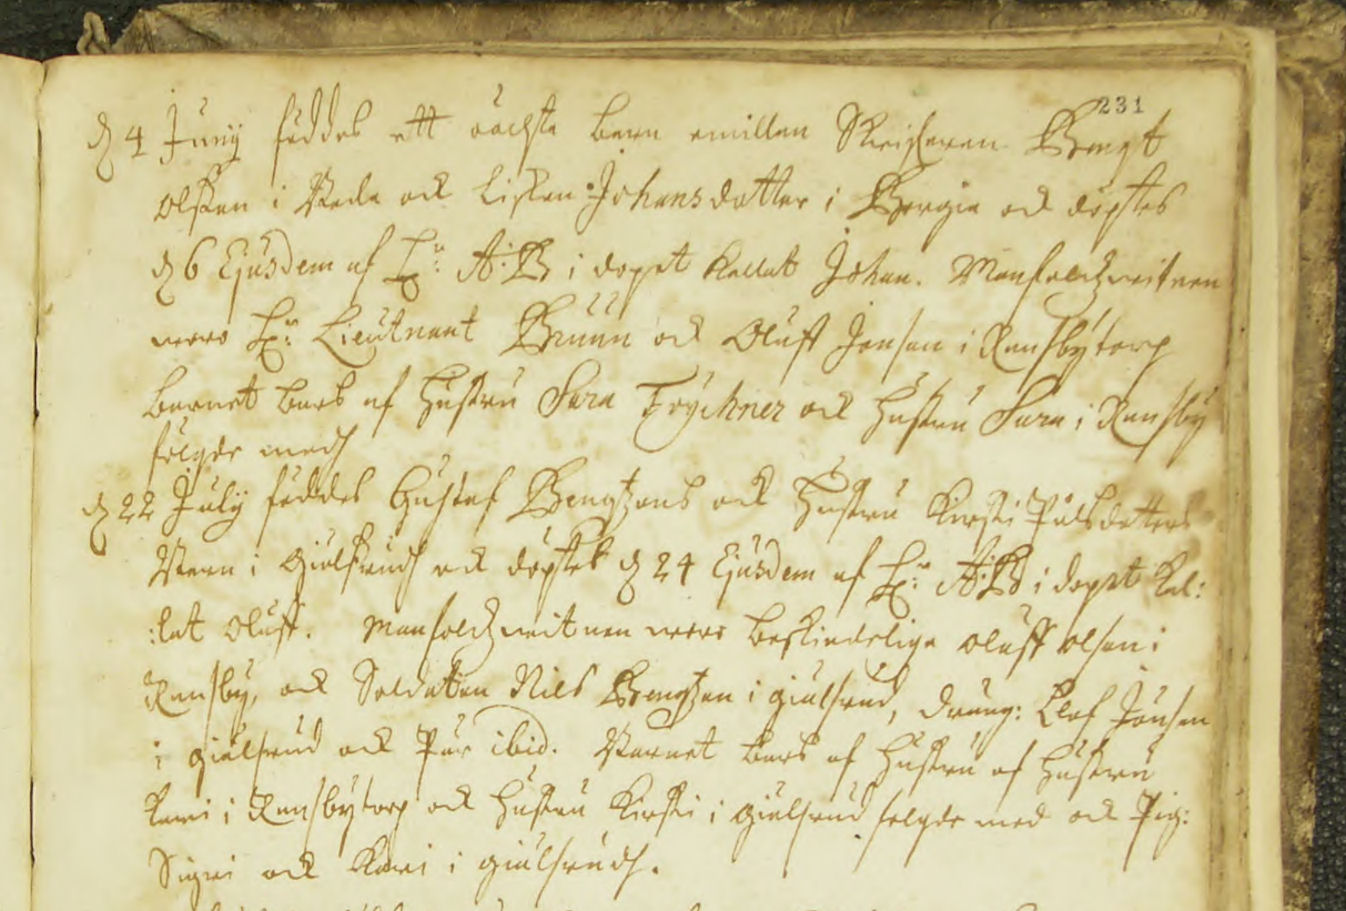 231
d 4 Junij föddes ett oächta barn emillan Skrifwaren Bengt
Olsson i Wada och Lisken Johansdotter i Bergia och döptes
d 6 Ejusdem af Hr: A: B i dopet kallat Johan. Manfolckzwitnen
woro Hr: Lieutnant Bruun och Oluff Jonsen i Ransbytorp
barnet bars af hustru Sara Frychner och hustru Sara i Ransby
fölgde medh
d 22 July föddes Gustaf Bengtzons och Hustru Kirsti Pålsdotters
Barn i Giulsrudh och döptes d 24 Ejusdem af Hr: A: B i dopet kal:
:lat Oluff. Manfolckzwitnen woro beskiedelige Oluff Olsen i
Ransby, och Soldaten Nils Bengtzen i giulsrud, dräng: Olof Jonsen
i giulsrud och Pär ibid. Barnet bars af hustru af hustru
Kari i Ransbytorp och hustru Kirsti i giulsrud folgde med och Pig:
Sigri och Kari i giulsrudh.